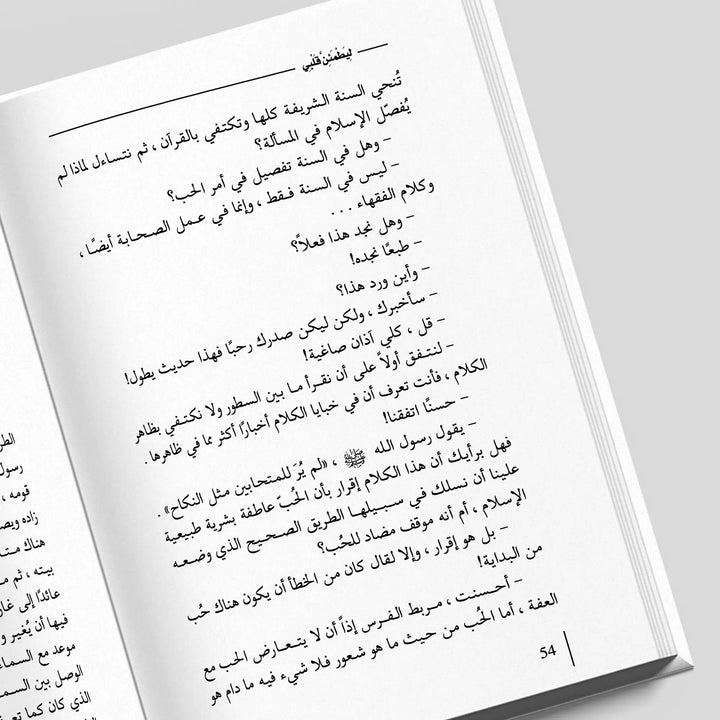 لِيَطْمَئِنَّ قَلْبِي
تُنحي السنة الشريفة كلها وتكتفي بالقرآن ، ثم نتساءل لماذا لم
يُفصّل الإسلام في المسألة؟
– وهل في السنة تفصيل في أمر الحب؟
– ليس في السنة فـقـط ، وإنما في عـمل الصـحـابة أيضًـا ،
وكلام الفقهاء . . .
– وهل نجد هذا فعلاً؟
– طبعًا نجده!
– وأين ورد هذا؟
– سأخبرك ، ولكن ليكن صدرك رحبًا فهذا حديث يطول!
– قل ، كلي آذان صاغية!
– لنتـفـق أولاً على أن نقـرأ مـا بين السطور ولا نكتـفـي بظاهر
الكلام ، فأنت تعرف أن في خبايا الكلام أخبارًا أكثر مما في ظاهرها .
– حسنًا اتفقنا!
– يقول رسول الله ﷺ ، «لم يُرَ للمتحابين مثل النكاح» .
فهل برأيك أن هذا الكلام إقرار بأن الحُبّ عاطفة بشرية طبيعية
علينا أن نسلك في سـبـيلهـا الطريق الصـحـيح الذي وضـعـه
الإسلام ، أم أنه موقف مضاد للحُب؟
– بل هو إقرار ، وإلا لقال كان من الخطأ أن يكون هناك حُب
من البداية!
– أحـسنت ، مـربط الفـرس إذاً أن لا يتـعـارض الحب مع
العفة ، أما الحُب من حيث ما هو شعور فلا شيء فيه ما دام هو
54
الطر
رسول
قومه ،
زاده ويصـ
هناك مـتـ
بيته ، ثم مـ
عائدًا إلى غار
فيها أن يُغير و
موعد مع السماء
الوصل بين السمـ
الذي كان كما تعر